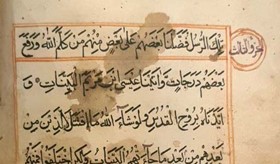 الجزو الثالث
تلك الرسل فضلنا بعضهم على بعض منهم من كلم الله ورفع
بعضهم درجات واتينا عيسى ابن مريم البينات و
ايدناه بروح القدس ولو شاء الله ما اقتتل الذين من
بعدهم من بعد ما جاءتهم البينات ولكن اختلفوا فمنهم